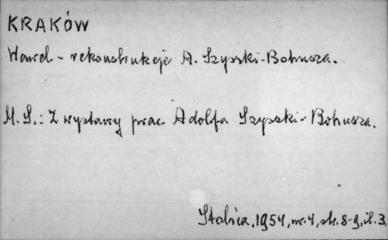 KRAKÓW
Wawel - rekonstrukcje A. Szyszki-Bohusza.
M. S.: Z wystawy prac Adolfa Szyszki-Bohusza.
Stolica, 1954, nr. 4, str. 8-9, il. 3